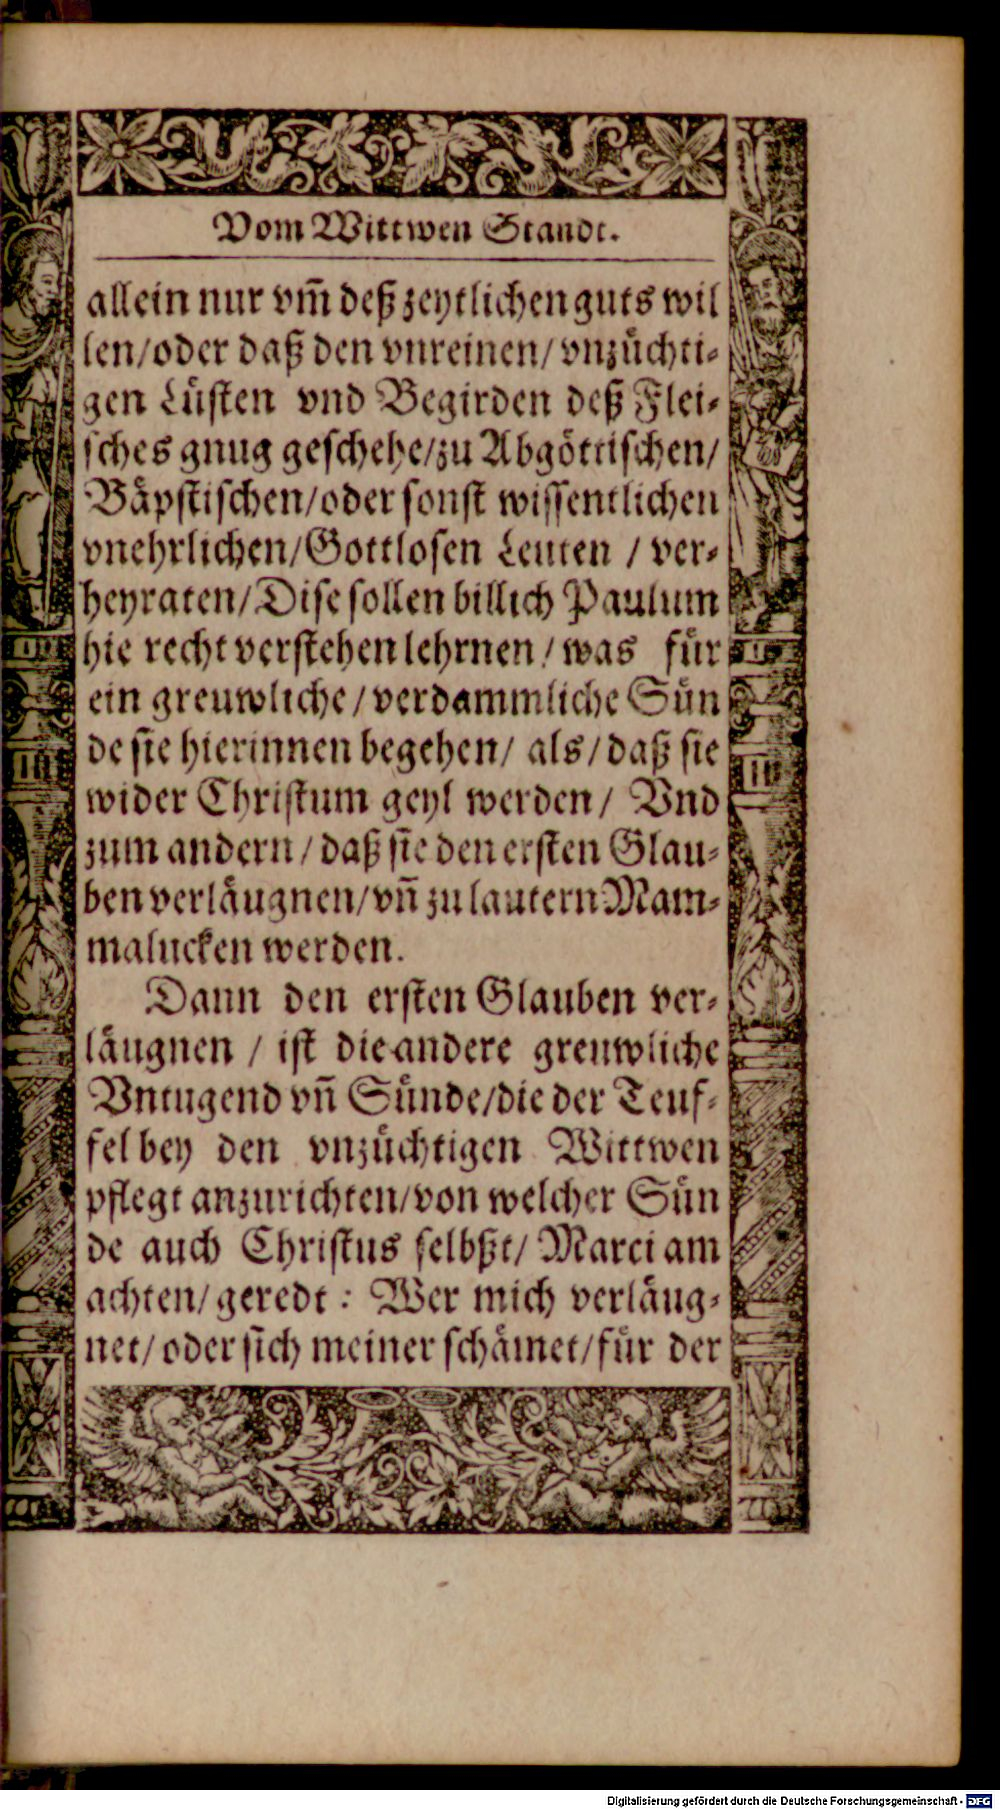 Vom Wittwen Standt.
allein nur vm̃ deß zeytlichen guts wil
len/oder daß den vnreinen/ vnzuͤchti⸗
gen Luͤſten vnd Begirden deß Flei⸗
ſches gnug geſchehe/zu Abgoͤttiſchen/
Baͤpſtiſchen/oder ſonſt wiſſentlichen
vnehrlichen/Gottloſen Leuten / ver⸗
heyraten/Diſe ſollen billich Paulum
hie recht verſtehen lehrnen/ was fuͤr
ein greuwliche/verdammliche Suͤn
de ſie hierinnen begehen/ als/daß ſie
wider Chriſtum geyl werden/ Vnd
zum andern/daß ſie den erſten Glau⸗
ben verlaͤugnen/vñ zu lautern Mam⸗
malucken werden.
Dann den erſten Glauben ver⸗
laͤugnen / iſt die andere greuwliche
Vntugend vñ Suͤnde/die der Teuf⸗
fel bey den vnzuͤchtigen Wittwen
pflegt anzurichten/von welcher Suͤn
de auch Chriſtus ſelbßt/ Marci am
achten/geredt : Wer mich verlaͤug⸗
net/oder ſich meiner ſchaͤmet/fuͤr der
Digitalisierung gefördert durch die Deutsche Forschungsgemeinschaft - DFG